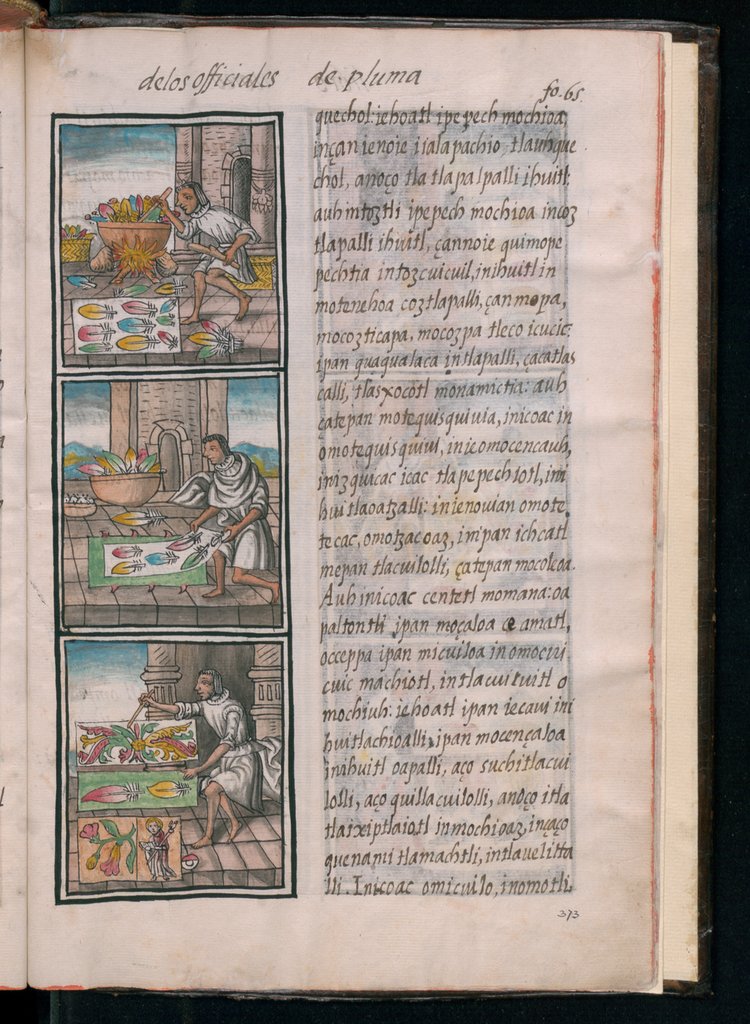 delos officiales de pluma
fo. 65
quechol: iehoatl ipepech mochioa,
inçan ie noie i ialapachio, tlauhque
chol, anoço tla tlapalpalli ihuitl:
auh in toztli ipepech mochioa in coz
tlapalli ihuitl, çannoie quimope
pechtia in tozcuicuil, in ihuitl in
motenehoa coztlapalli, çan mopa,
mocozticapa, mocozpa tleco icucic:
ipan quaqualaca in tlapalli, çacatlas
calli, tlasxocotl monamictia: auh
çatepan motequisquiuia, inicoac in
omotequisquiui, in ie omocencauh,
in izquicac icac tlapepechiotl, ini
huitlaoatzalli: in ie nouian omote
tecac, omotzacoaz, inipan ichcatl
mepan tlacuilolli, çatepan mocoleoa.
Auh inicoac centetl momana: oa
paltontli ipan moçaloa amatl,
occeppa ipan micuiloa in omocui
cuic machiotl, in tlacuiluitl o
mochiuh: iehoatl ipan iecaui ini
huitlachioalli, ipan mocençaloa
inihuitl oapalli, aço suchitlacui
lolli, aço quillacuilolli, anoço itla
tlaixiptlaiotl in mochioaz, inçaço
quenami tlamachtli, intlauelitta
lli. Inicoac omicuilo, in omotli,
373